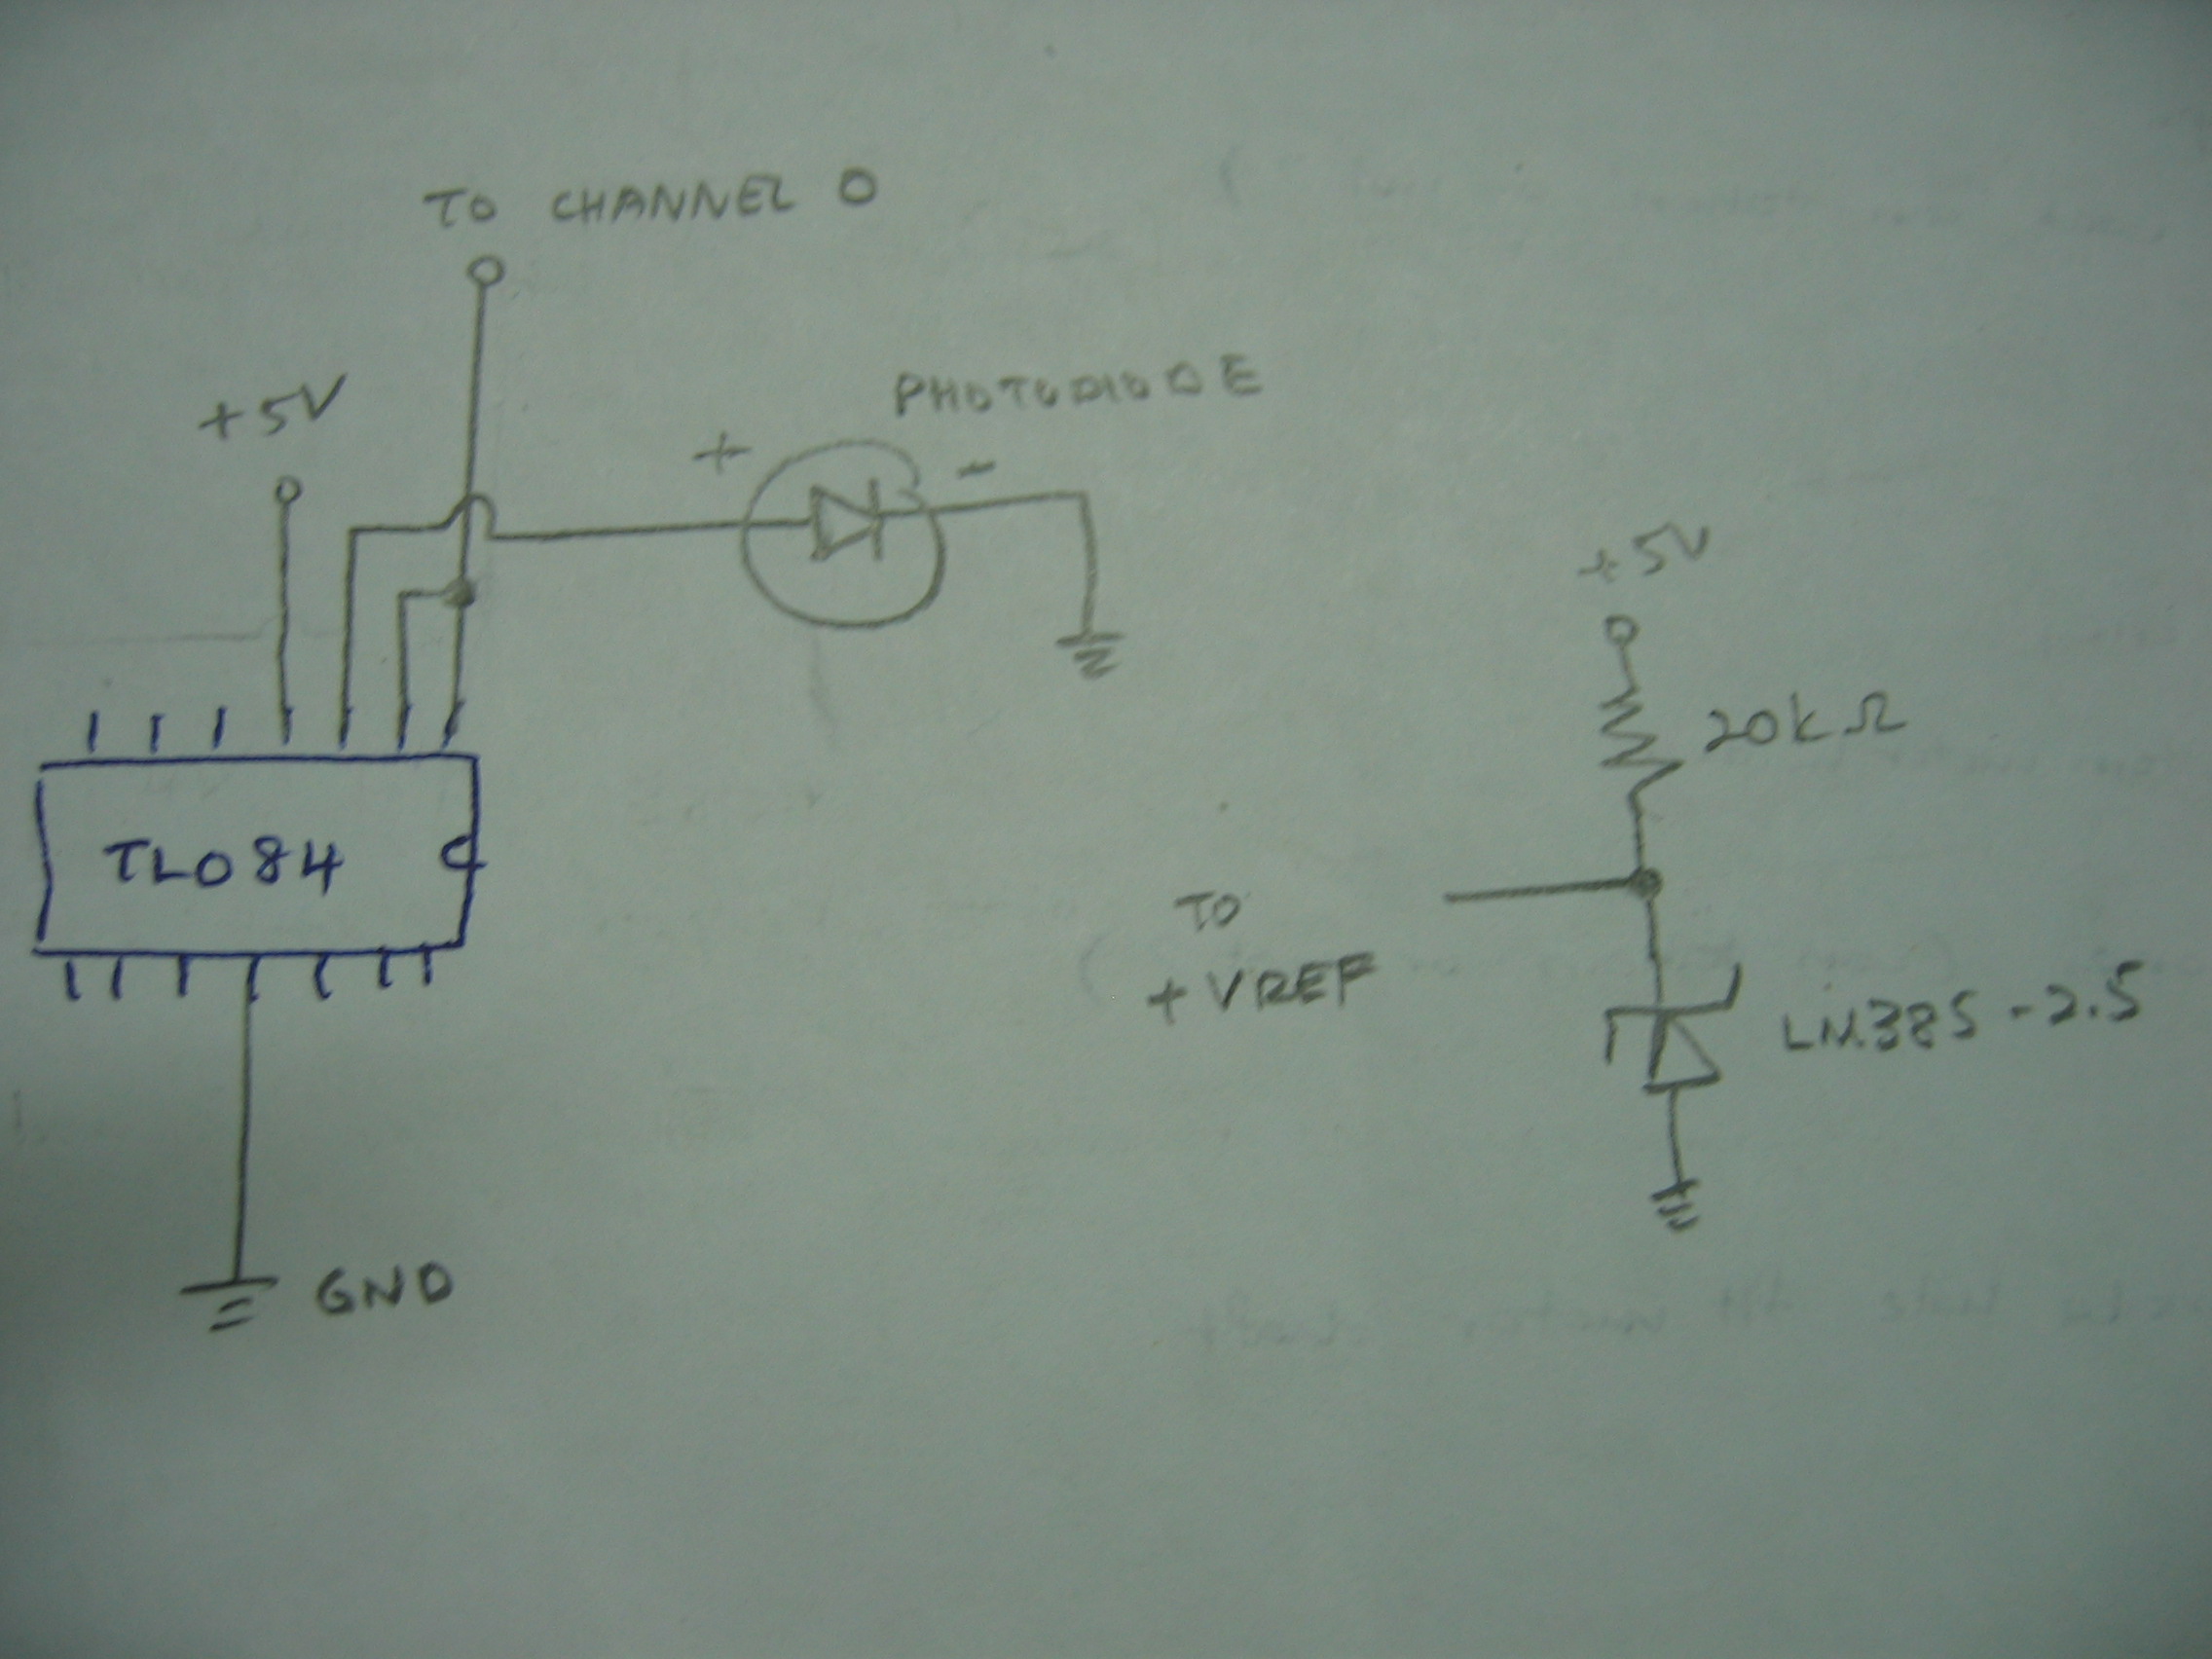 TO CHANNEL 0
+5V
PHOTODIODE
+ -
+5V
20kΩ
TL084
TO
+VREF
LM385-2.5
GND